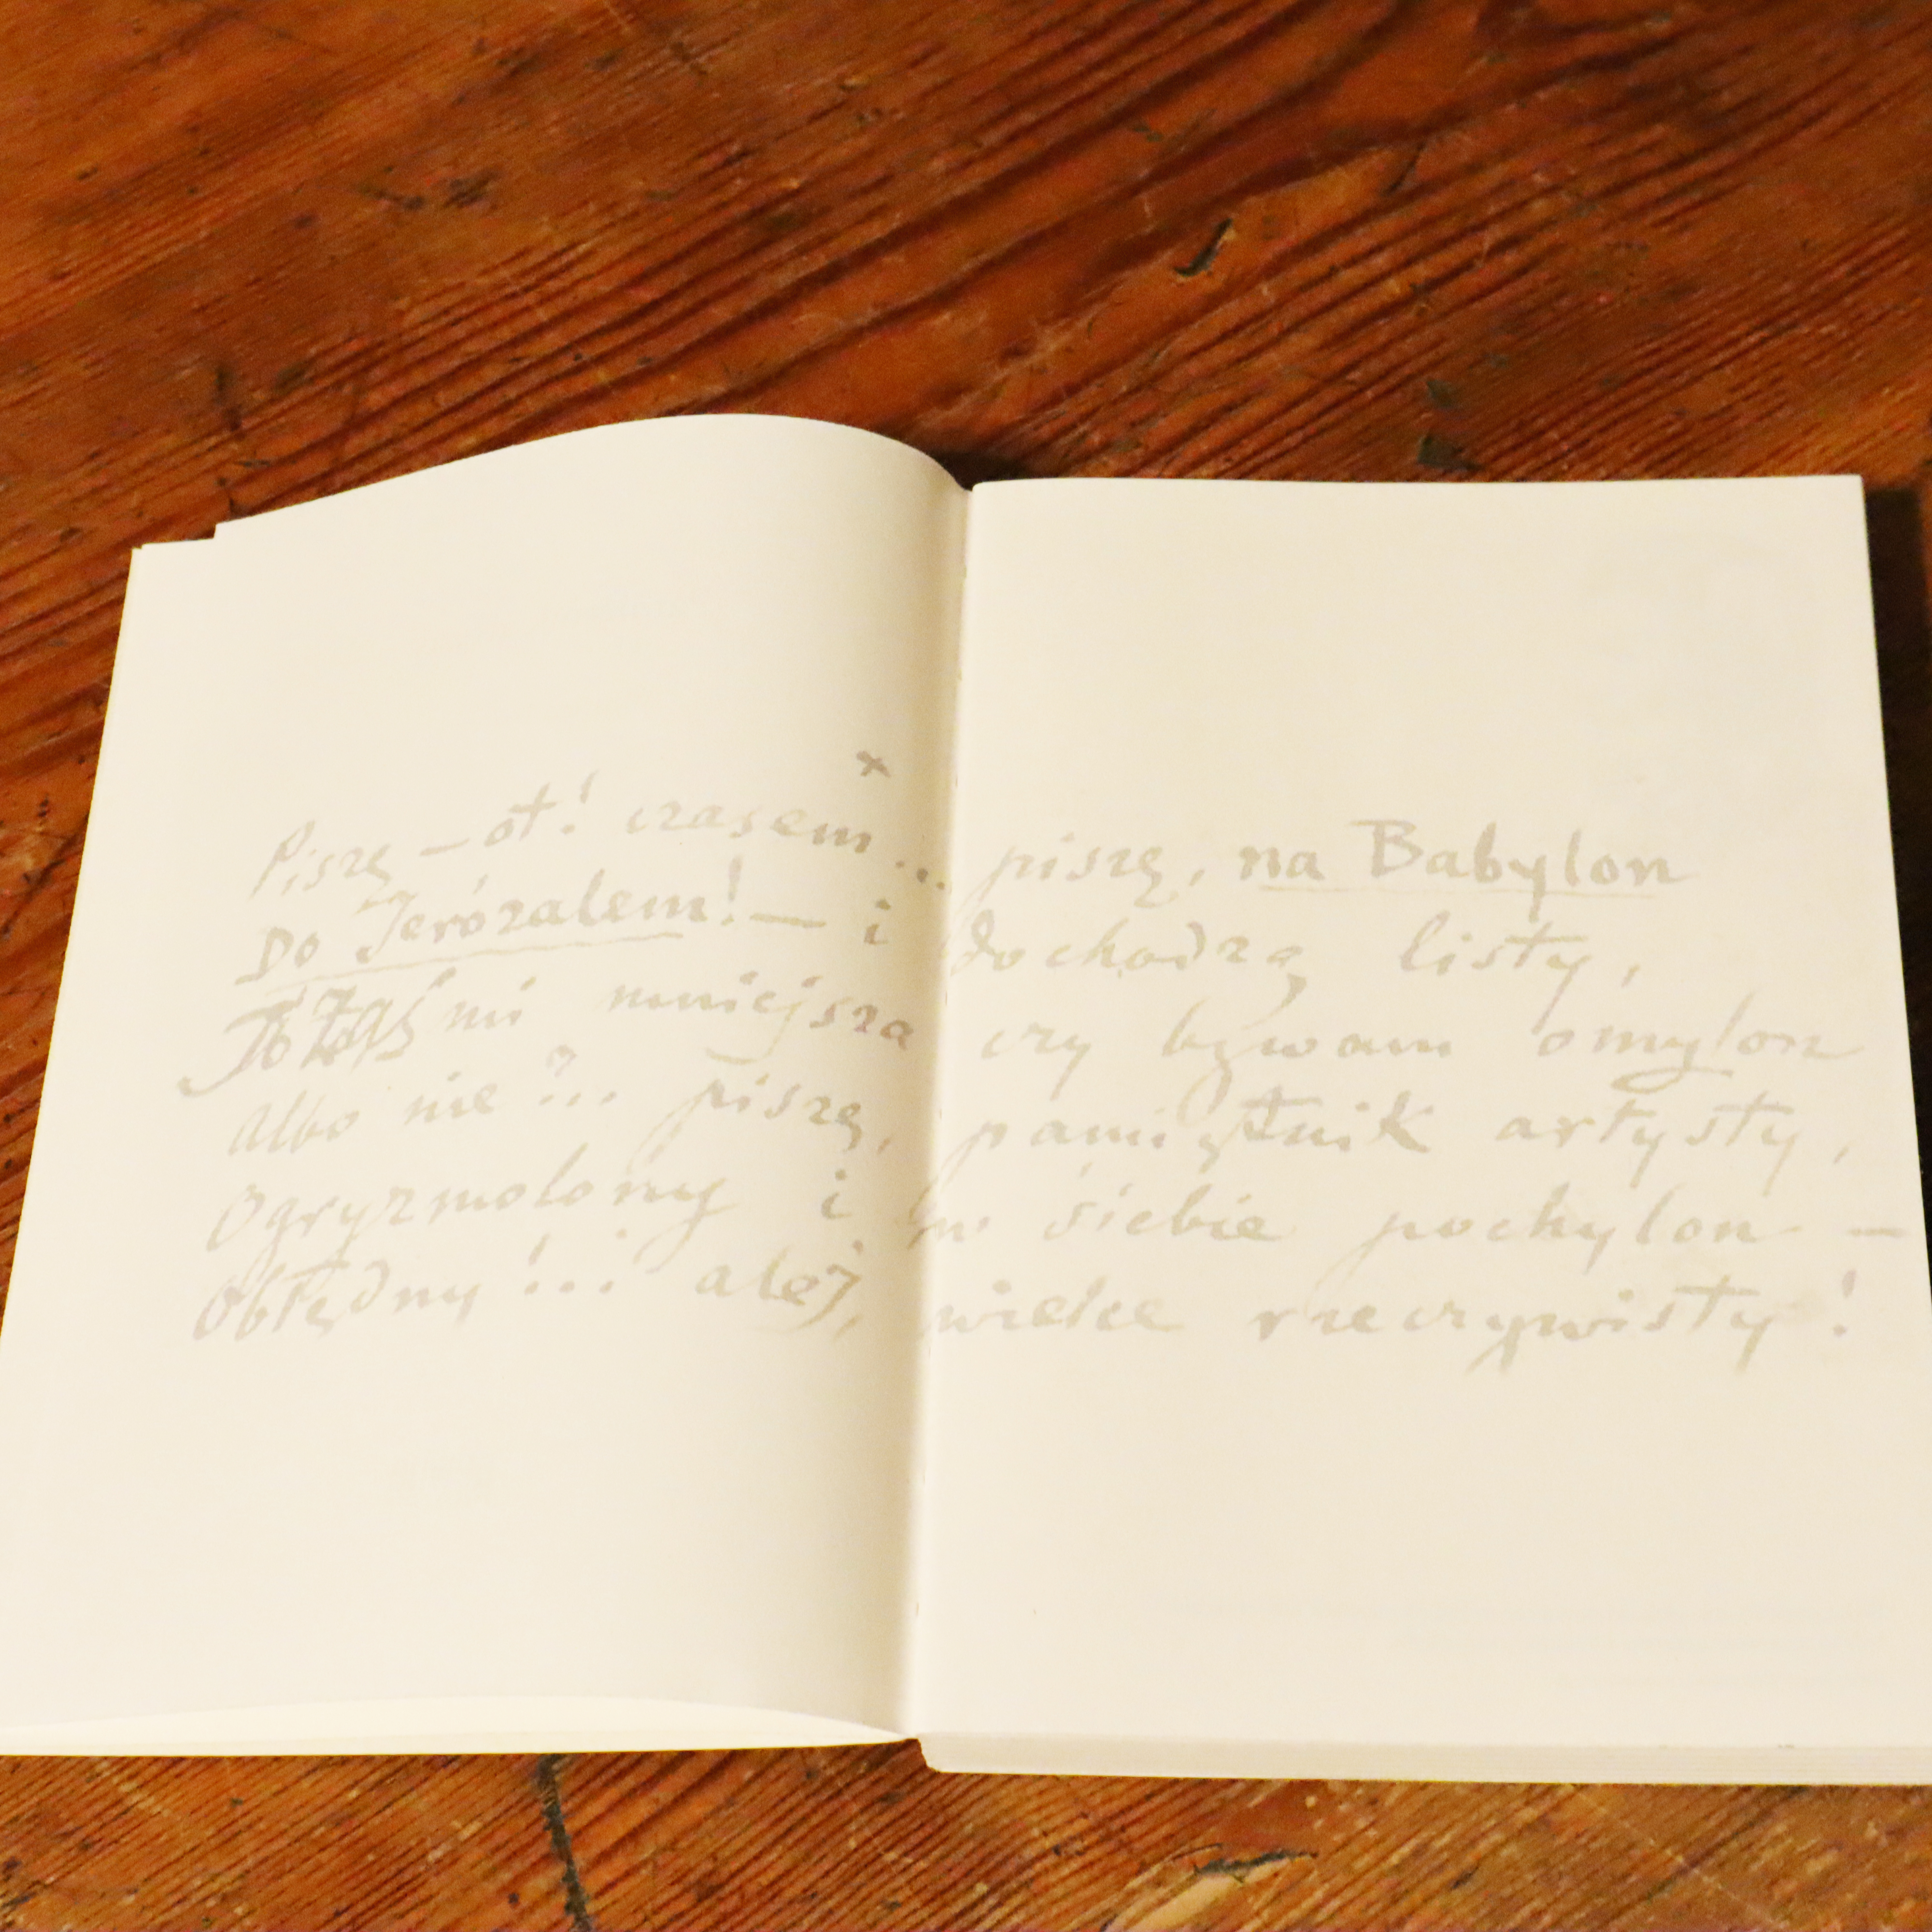 ×
Piszę – ot! czasem... piszę, na Babylon
Do Jerózalem! – i dochodzą listy,
To zaś mi mniejsza czy bywam omylon
Albo nie?... piszę, pamiętnik artysty,
Ogryzmolony i w siebie pochylon –
Obłędny!... ależ, wielce rzeczywisty!